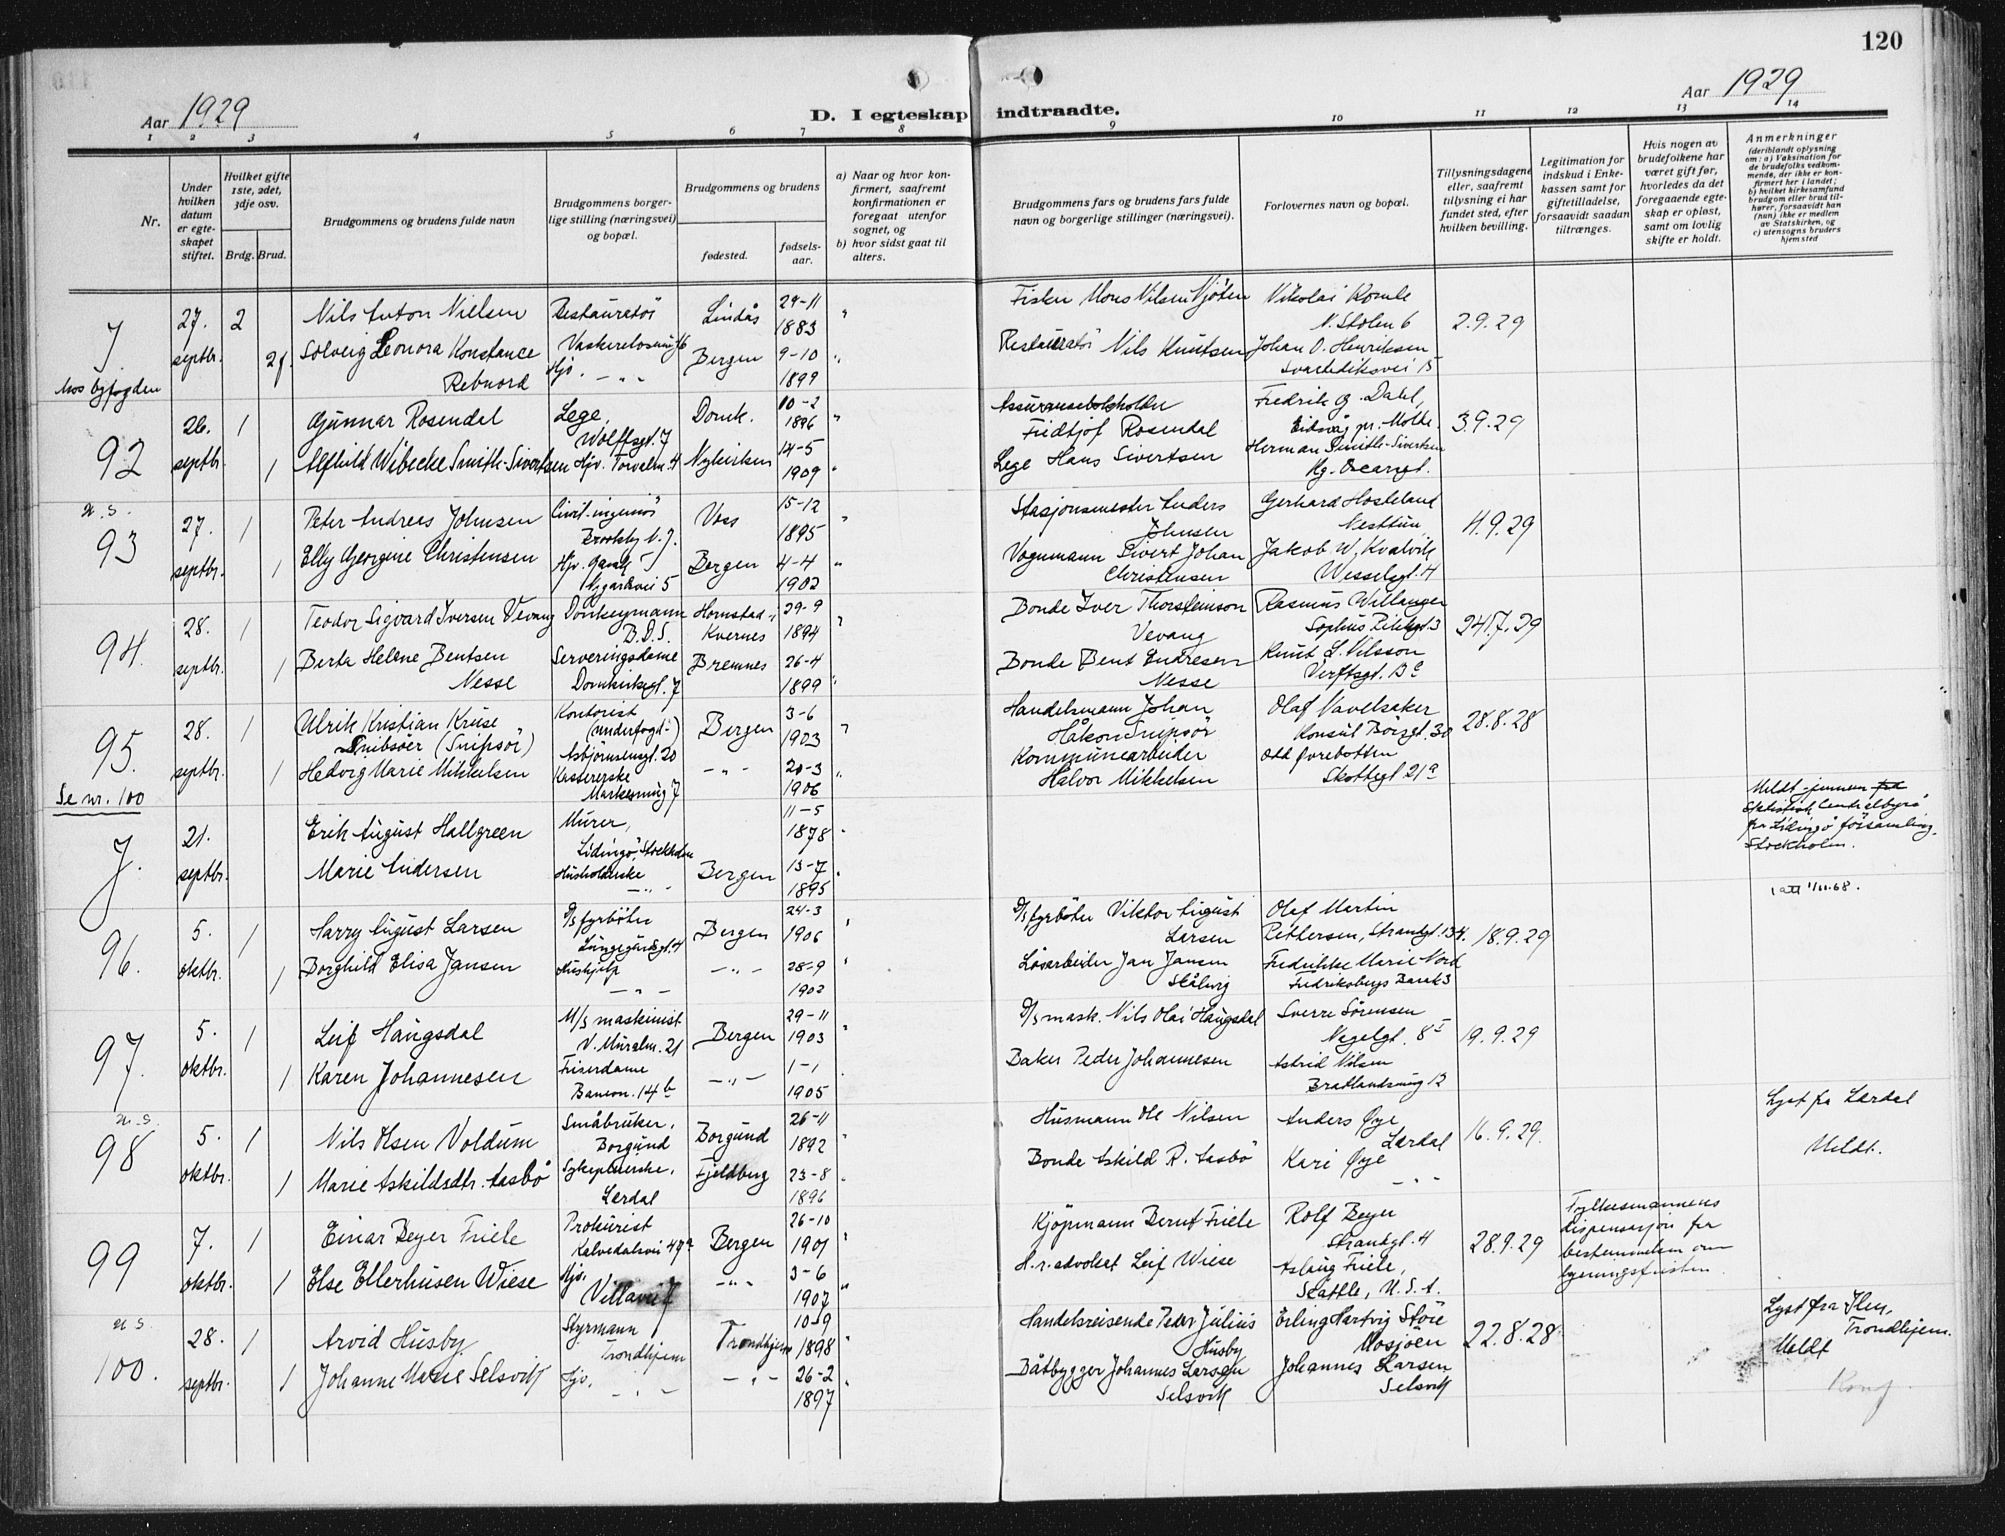 120
Aar 1929
D. I egteskap indtraadte.
Aar 1929
1 2 3 4 5 6 7 8 9 10 11 12 13 14
Nr.
Under hvilken datum er egteskapet stiftet.
Hvilket gifte 1ste, 2det, 3dje osv.
Brdg. Brud.
Brudgommens og brudens fulde navn
Brudgommens borgerlige stilling (næringsvei) og bopæl.
Brudgommens og brudens
fødested.
fødselsaar.
a) Naar og hvor konfirmert, saafremt konfirmationen er foregaat utenfor sognet, og
b) hvor sidst gaat til alters.
Brudgommens fars og brudens fars fulde navn og borgerlige stillinger (næringsvei).
Forlovernes navn og bopæl.
Tillysningsdagene eller, saafremt tillysning ei har fundet sted, efter hvilken bevilling.
Legitimation for indskud i Enkekassen samt for giftetilladelse, forsaavidt saadan tiltrænges.
Hvis nogen av brudefolkene har været gift før, hvorledes da det foregaaende egteskap er opløst, samt om lovlig skifte er holdt.
Anmerkninger
(deriblandt oplysning om: a) Vaksination for de brudefolks vedkommende, der ikke er konfirmert her i landet; b) hvilket kirkesamfund brudgom eller brud tilhører, forsaavidt han (hun) ikke er medlem av Statskirken, og c) utensogns bruders hjemsted
J. 27. septbr. 2 Nils Anton Nielsen Restauratør Lindås 29-11 1883 Fisker Mons Nilsen Njøten Nikolai Romle N. Stølen 6 2.9.29
Hos byfogden
Solveig Leonora Konstance Rebnord Hjv. Bergen 9-10 1899 Restauratør Nils Knutsen Johan O. Henriksen Svartediksvei 15
92 26. septbr. 1 Gunnar Rosendal Lege, Wolffsgt. 7 Domk. 10-2 1896 Fridtjof Rosendal Fredrik G. Dahl, Eidsvåg pr. Molde. 3.9.29
1 Alfhild Wibecke Smith-Sivertsen Hjv. Torvelm. 4 Nykirken 14-5 1909 Lege Hans Sivertsen Herman Smith-Sivertsen Kg. Oscarsgt.
u. s.
93 27. septbr. 1 Peter Andreas Johnsen Civil-ingeniør Voss 15-12 1895 Stasjonsmester Anders Johnsen Gerhard Hosteland Nesttun 4.9.29
1 Elly Georgine Christensen Hjv. Nygårdsvei 5 Bergen 4-4 1902 Vognmann Sivert Johan Christensen Jakob W. Kvalvik Wesselsgt. 4
94. 28. septbr. 1 Teodor Sigvard Iversen Vevang Donkeymann B.D.S. Kvernes 29-9 1894 Bonde Iver Thorsteinson Vevang Rasmus Willanger 24.7.29
1 Berta Helene Bentsen Nesse Serveringsdame Domkirkegt. 7 Bremnes 26-4 1899 Bonde Bent Endresen Nesse Knut L. Nilsson Verftsgt.
95. 28. septbr. 1 Ulrik Kristian Kruse Snibsøer (Snipsør) Kontorist (underfogd-) Asbjørnsensgt. 20 Bergen 3-6 1903 Handelsmann Johan Håkon Snipsør Olaf Vavelsaker Konsul Børsgt. 30 28.8.28
1 Hedvig Marie Mikkelsen Kassererske 7 -"- 20-3 1906 Kommunearbeider Halvor Mikkelsen Odd Øvrebotten Skottegt 21a
Se nr. 100
J. 21. septbr. Erik August Hallgreen Murer, Lidingö, Stockholm 11-5 1878
Marie Andersen Husholderske -"- Bergen 13-7 1895
Meldt gjennem Statistisk Centralbyrå fra Lidingö församling, Stockholm.
96. 5. oktbr. 1 Harry August Larsen D/s fyrbøter Lungegårdsgt. 4 Bergen 24-3 1906 D/s fyrbøter Viktor August Larsen Olaf Martin Pettersen, Strandgt. 134. 18.9.29
1 Borghild Elisa Jansen Hushjelp -"- -"- 28-9 1902 Løsarbeider Jan Jansen Stålvig Fredrikke Marie Nord Fredriksbergs
97. 5. oktbr. 1 Leif Haugsdal M/s maskinist V. Muralm. 21 Bergen 29-11 1903 D/s mask. Nils Olai Haugsdal Sverre Sørensen Nagelgt. 8 I 19.9.29
1 Karen Johannesen Frisørdame 14b -"- 1-1 1905 Baker Peder Johannesen Astrid Nilsen
u. s.
98 5. oktbr. 1 Nils Olsen Voldum Småbruker, Borgund Borgund 26-11 1892 Husmann Ole Nilsen Anders Øye Lærdal 16.9.29.
1 Marie Askildsdtr. Aasbø Sykepleierske, Lærdal Fjeldberg 23-8 1896 Bonde Askild R. Aasbø Kari Øye -"-
Lyst fra Lærdal
Meldt.
99 7. oktbr. 1 Einar Beyer Friele Prokurist Kalvedalsvei 49a Bergen 26-10 1901 Kjøpmann Bernt Friele Rolf Beyer Strandgt. 4 28.9.29
1 Else Ellerhusen Wiese Hjv. Villavei 7 -"- 3-6 1907 H.r.advokat Leif Wiese Aslaug Friele, Seattle, U.S.A.
Fylkesmannens dispensasjon fra bestemmelsen om lysningsfristen.
u. s.
100. 28. septbr. 1 Arvid Husby Styrmann Trondhjem Trondhjem 10-9 1898 Handelsreisende Peder Julius Husby Erling Hartvig Støre Mosjøen 22.8.28
1 Johanne Marie Selsvik Hjv. -"- -"- 26-2 1897 Båtbygger Johannes Larsen Selsvik Johannes Larsen Selsvik
Lyst fra Ilen, Trondhjem.
Meldt